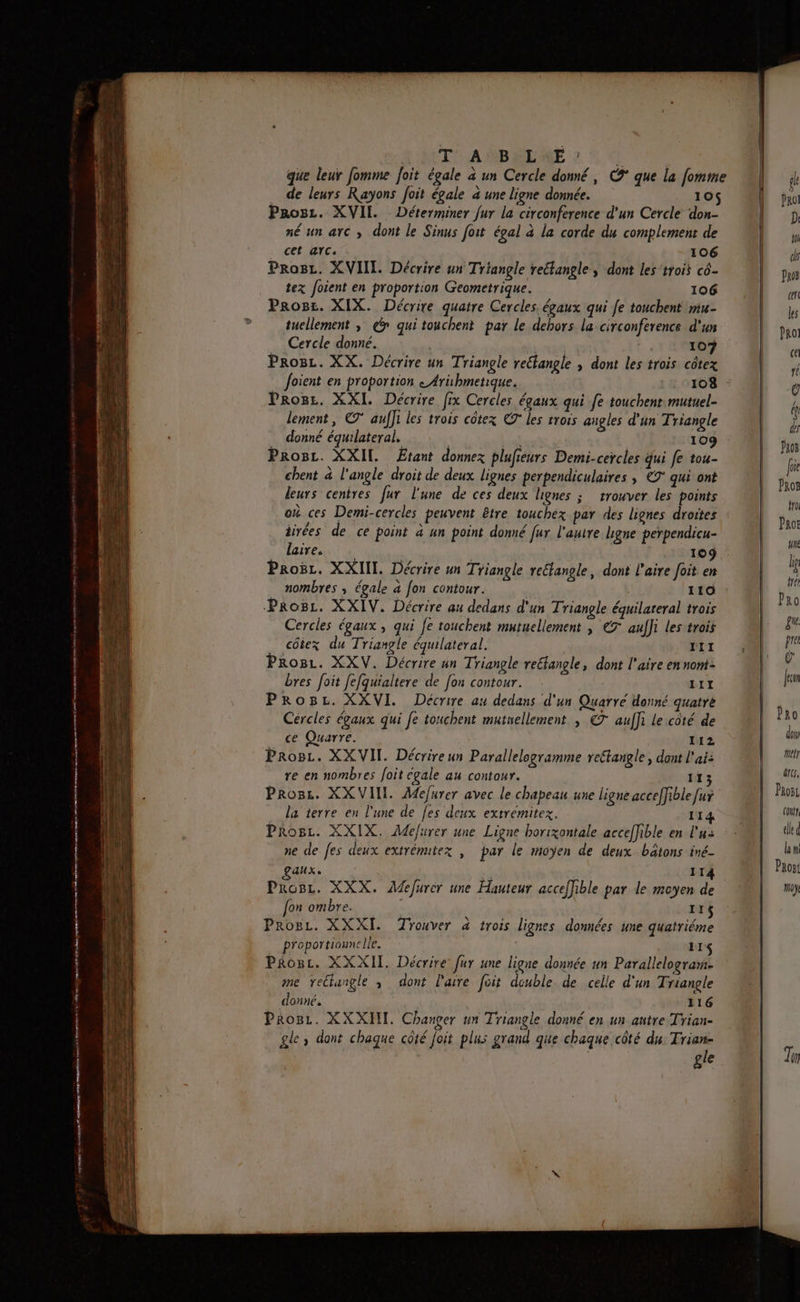 TABLE
que leur ſomme ſoit égale à un Cercle donné, & que la ſomme
de leurs Rayons ſoit égale à une ligne donnée. 105
PROBL. XVII. Déterminer ſur la circonference d'un Cercle don-
né un arc, dont le Sinus ſoit égal à la corde du complement de
cet arc. 106
PROBL. XVIII. Décrire un Triangle rectangle, dont les trois cô-
tez ſoient en proportion Geometrique. 106
PROBL. XIX. Décrire quatre Cercles égaux qui ſe touchent mu-
tuellement, & qui touchent par le dehors la circonference d'un
Cercle donné. 107
PROBL. XX. Décrire un Triangle rectangle, dont les trois côtez
ſoient en proportion Arithmetique. 108
PROBL. XXI. Décrire ſix Cercles égaux qui ſe touchent mutuel-
lement, & auſſi les trois côtez & les trois angles d'un Triangle
donné équilateral. 109
PROBL. XXII. Étant donnez pluſieurs Demi-cercles qui ſe tou-
chent à l'angle droit de deux lignes perpendiculaires, & qui ont
leurs centres ſur l'une de ces deux lignes; trouver les points
où ces Demi-cercles peuvent être touchez par des lignes droites
tirées de ce point à un point donné ſur l'autre ligne perpendicu-
laire. 109
PROBL. XXIII. Décrire un Triangle rectangle, dont l'aire ſoit en
nombres, égale à ſon contour. 110
PROBL. XXIV. Décrire au dedans d'un Triangle équilateral trois
Cercles égaux, qui ſe touchent mutuellement, & auſſi les trois
côtez du Triangle équilateral. 111
PROBL. XXV. Décrire un Triangle rectangle, dont l'aire en nom-
bres ſoit ſeſquialtere de ſon contour. 111
PROBL. XXVI. Décrire au dedans d'un Quarré donné quatre
Cercles égaux qui ſe touchent mutuellement, & auſſi le côté de
ce Quarré. 112
PROBL. XXVII. Décrire un Parallelogramme rectangle, dont l'ai-
re en nombres ſoit égale au contour. 113
PROBL. XXVIII. Meſurer avec le chapeau une ligne acceſſible ſur
la terre en l'une de ſes deux extrémitez. 114
PROBL. XXIX. Meſurer une Ligne horizontale acceſſible en l'u-
ne de ſes deux extrémitez, par le moyen de deux bâtons iné-
gaux. 114
PROBL. XXX. Meſurer une Hauteur acceſſible par le moyen de
ſon ombre. 115
PROBL. XXXI. Trouver à trois lignes données une quatriéme
proportionnelle. 115
PROBL. XXXII. Décrire ſur une ligne donnée un Parallelogram-
me rectangle, dont l'aire ſoit double de celle d'un Triangle
donné. 116
PROBL. XXXIII. Changer un Triangle donné en un autre Trian-
gle, dont chaque côté ſoit plus grand que chaque côté du Trian-
gle